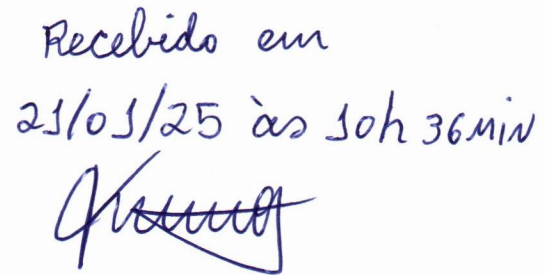 Recebido em
21/01/25 às 10h 36min